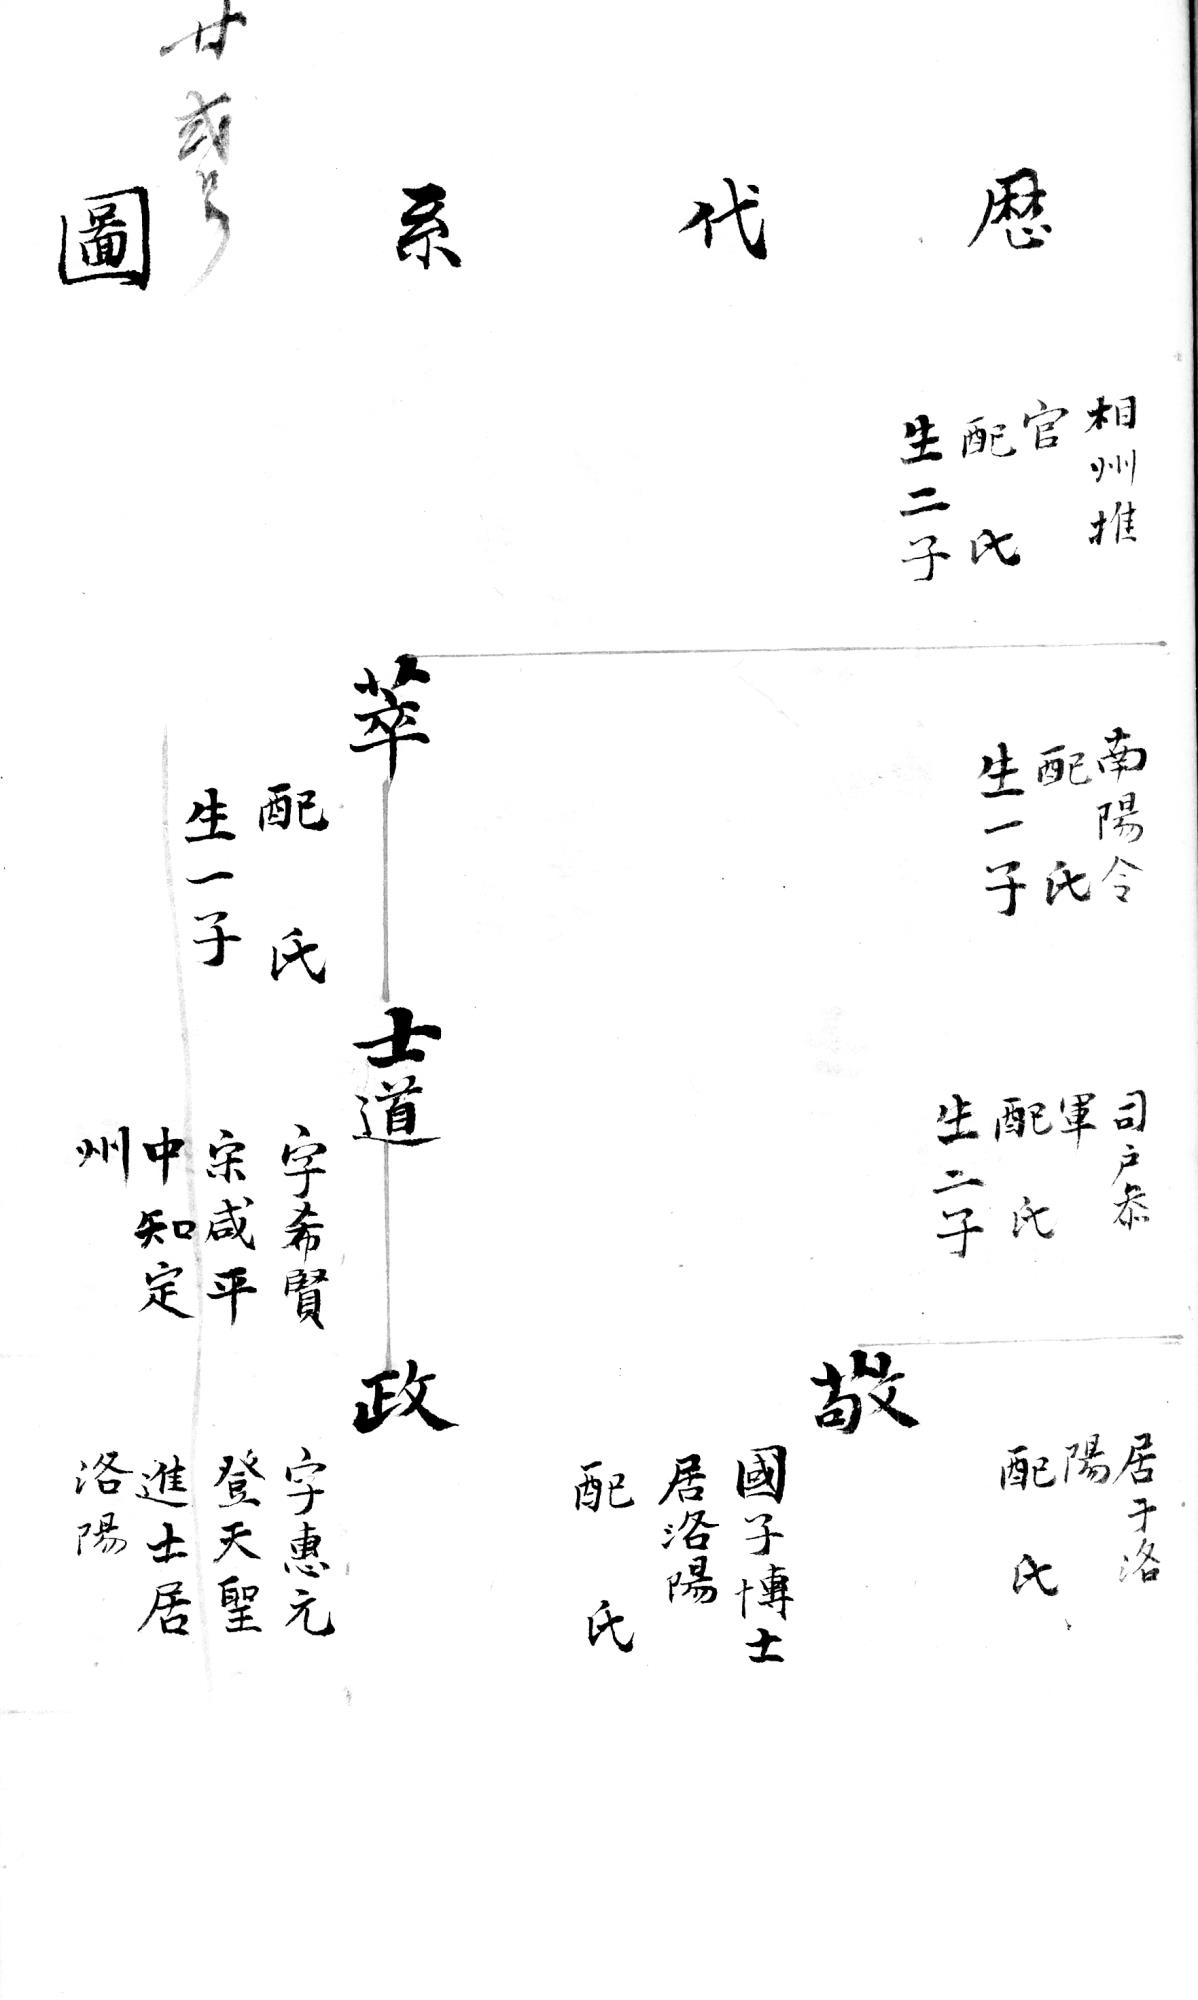 歷代系圖
廿貳号
相州推
官
配 氏
生二子
南陽令
配 氏
生一子
萃
配 氏
生一子
司户叅
軍
配 氏
生二子
士道
字希賢
宋咸平
中知定
州
居于洛
陽
配 氏
敬
國子博士
居洛陽
配 氏
政
字惠元
登天聖
進士居
洛陽